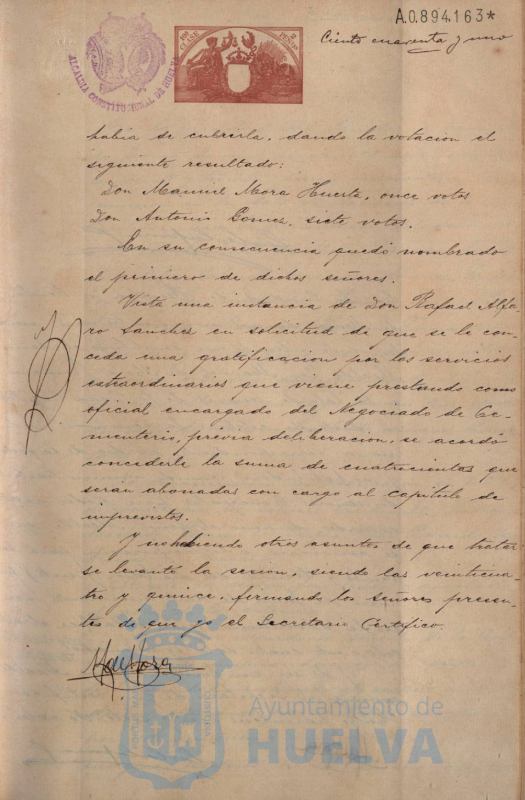 A.0.894.163*
Ciento cuarenta y uno
ALCALDIA CONSTITUCIONAL DE HUELVA
había de cubrirla, dando la votacion el
siguiente resultado:
Don Manuel Mora Huerta, once votos
Don Antonio Gomez, siete votos.
En su consecuencia quedó nombrado
el primero de dichos señores.
Vista una instancia de Don Rafael Alfa-
ro Sanchez en solicitud de que se le con-
ceda una gratificacion por los servicios
extraordinarios que viene prestando como
oficial encargado del Negociado de Ce-
menterio, previa deliberacion, se acordó
concederle la suma de cuatrocientas que
serán abonadas con cargo al capítulo de
imprevistos.
Y no habiendo otros asuntos de que tratar
se levantó la sesión, siendo las veinticua-
tro y quince, firmando los señores presen-
tes de que yo el Secretario Certifico.
Ayuntamiento de
HUELVA